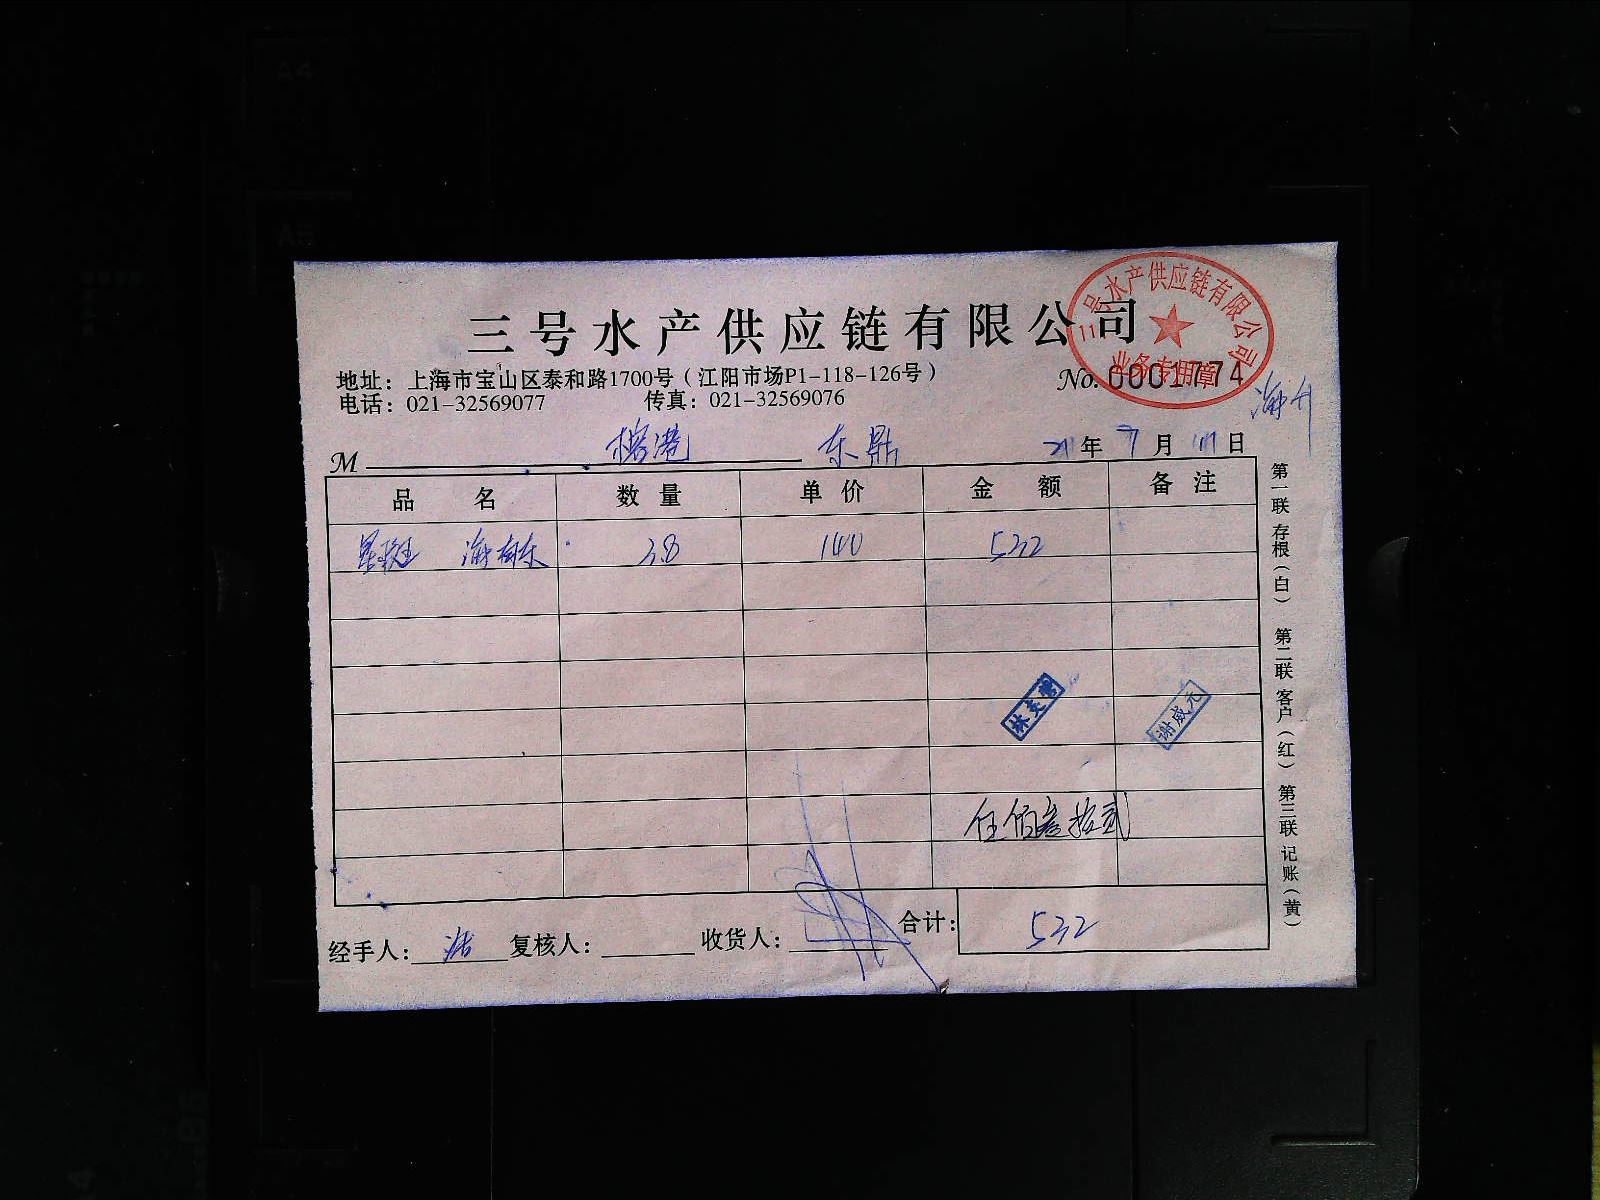 三号水产供应链有限公司
三号水产供应链有限公司
业务专用章
地址：上海市宝山区泰和路1700号（江阳市场P1-118-126号）
No. 0001774
电话：021-32569077 传真：021-32569076
M 榕港 东鼎 年 7 月 日
品名 数量 单价 金额 备注
星斑 3.8 140 532
林英
谢威元
伍佰叁拾贰
合计： 532
经手人： 复核人： 收货人：
第一联 存根（白） 第二联 客户（红） 第三联 记账（黄）